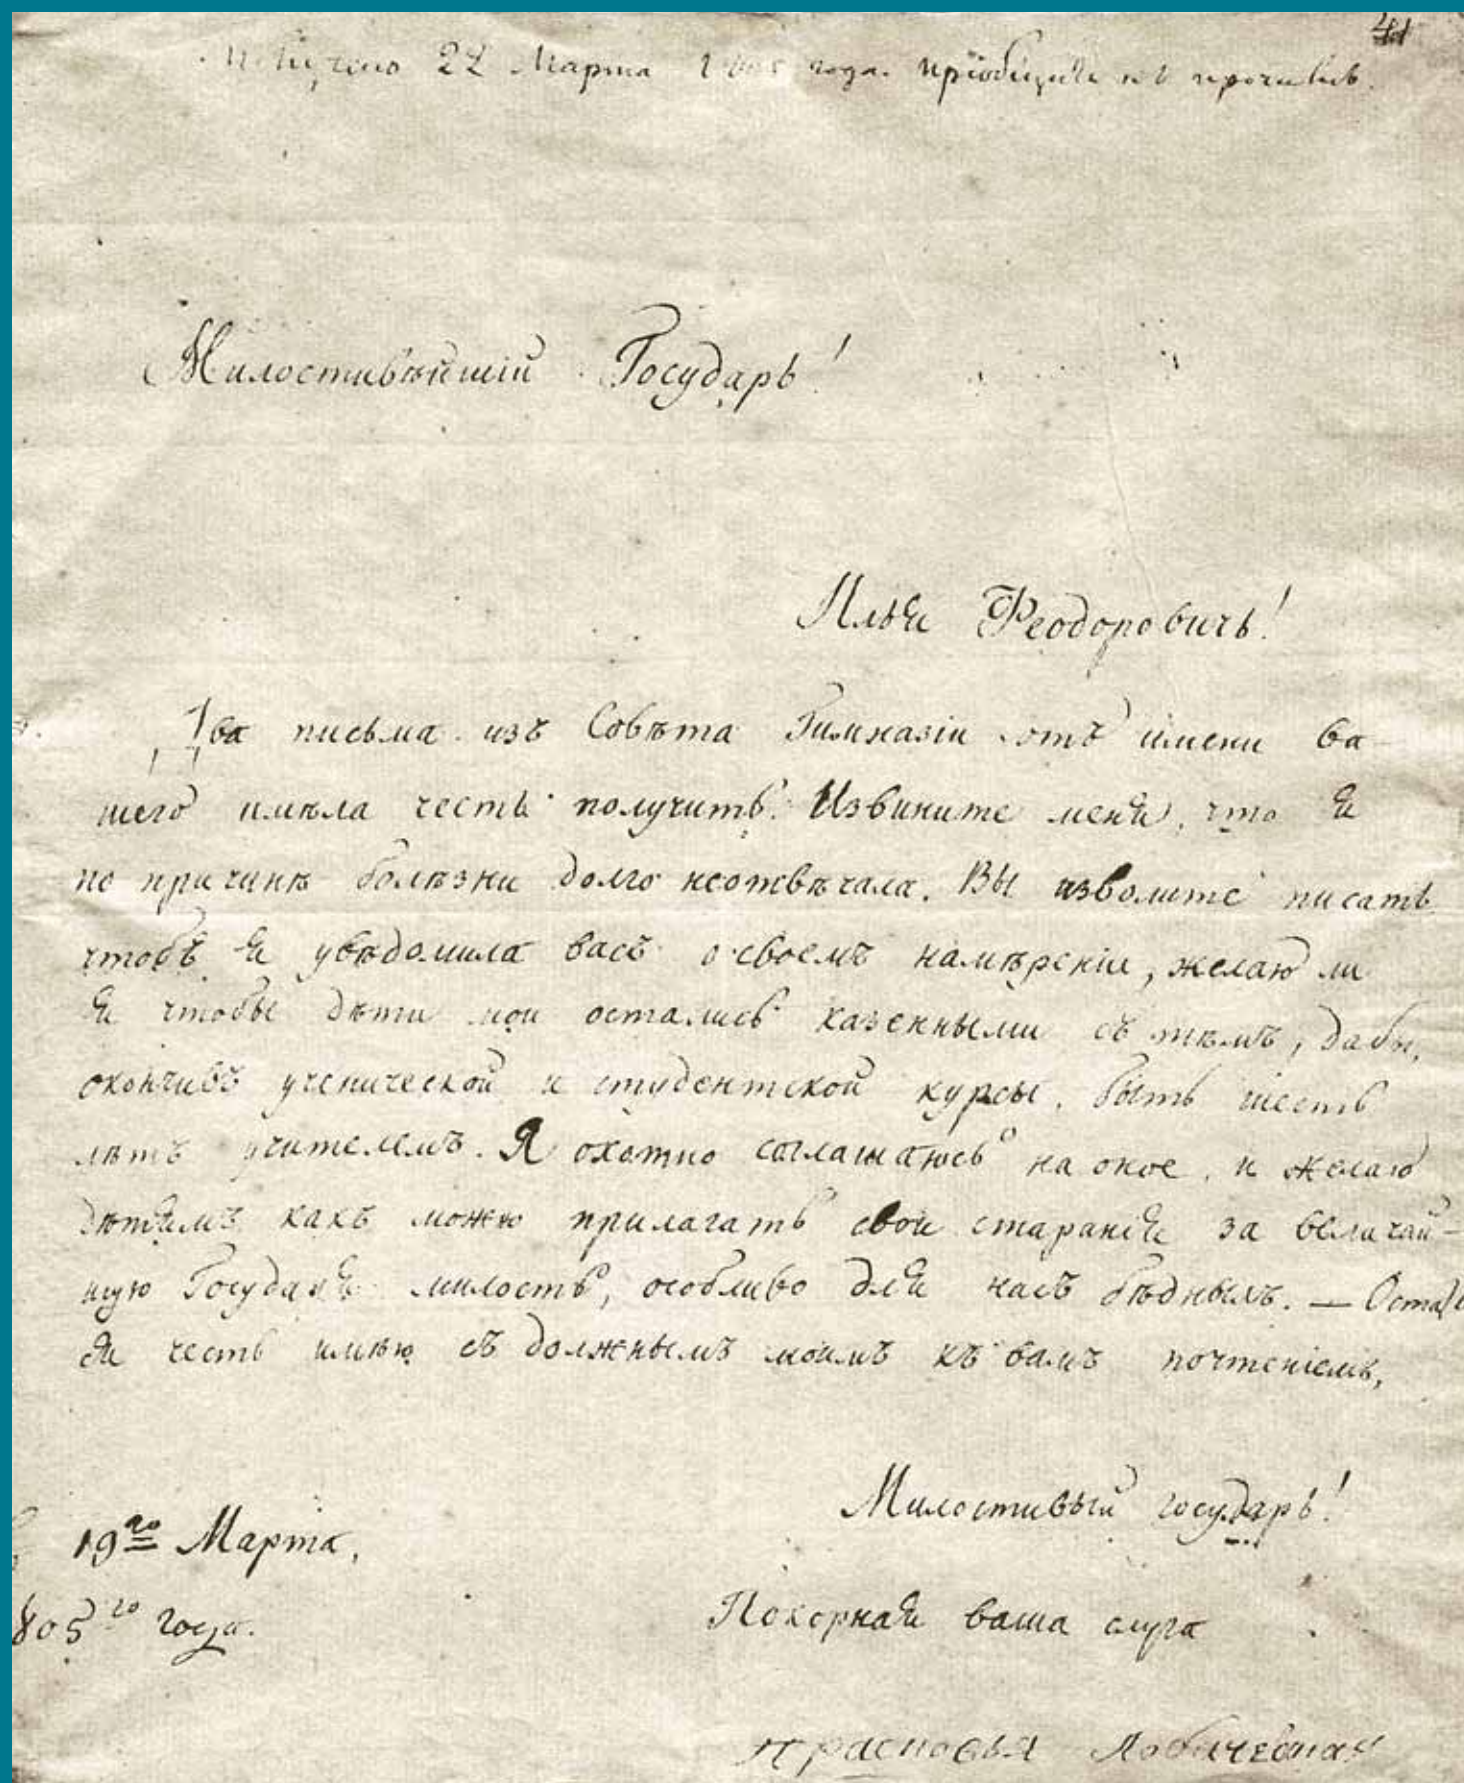 41
Получено 27 Марта 1805 года. приобщить къ прочимъ.
Милостивѣйшій Государь!
Илья Феодоровичь!
Два письма изъ Совѣта Гимназіи отъ имени ва-
шего имѣла честь получить. Извините меня, что я
по причинѣ болѣзни долго неотвѣчала. Вы изволите писать
чтобъ я увѣдомила васъ о своемъ намѣреніи, желаю ли
я чтобы дѣти мои остались казенными съ тѣмъ, дабы,
окончивъ ученической и студентской курсы, быть шесть
лѣтъ учителемъ. Я охотно соглашаюсь на оное, и желаю
дѣтямъ какъ можно прилагать свои старанія за величай-
шую Государя милость, особливо для насъ бѣдныхъ. —
ся честь имѣю съ должнымъ моимъ къ вамъ почтеніемъ,
Милостивый государь!
19го Марта,
805го года.
Покорная ваша слуга
Прасковья Лобачевская